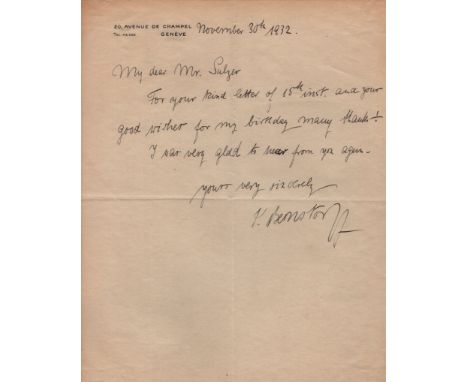 20, AVENUE DE CHAMPEL
GENÈVE
November 30th 1932.
My dear Mr. Sulzer
For your kind letter of 15th inst. and your
good wishes for my birthday many thanks!
I was very glad to hear from you again.
yours very sincerely
Bernstorff